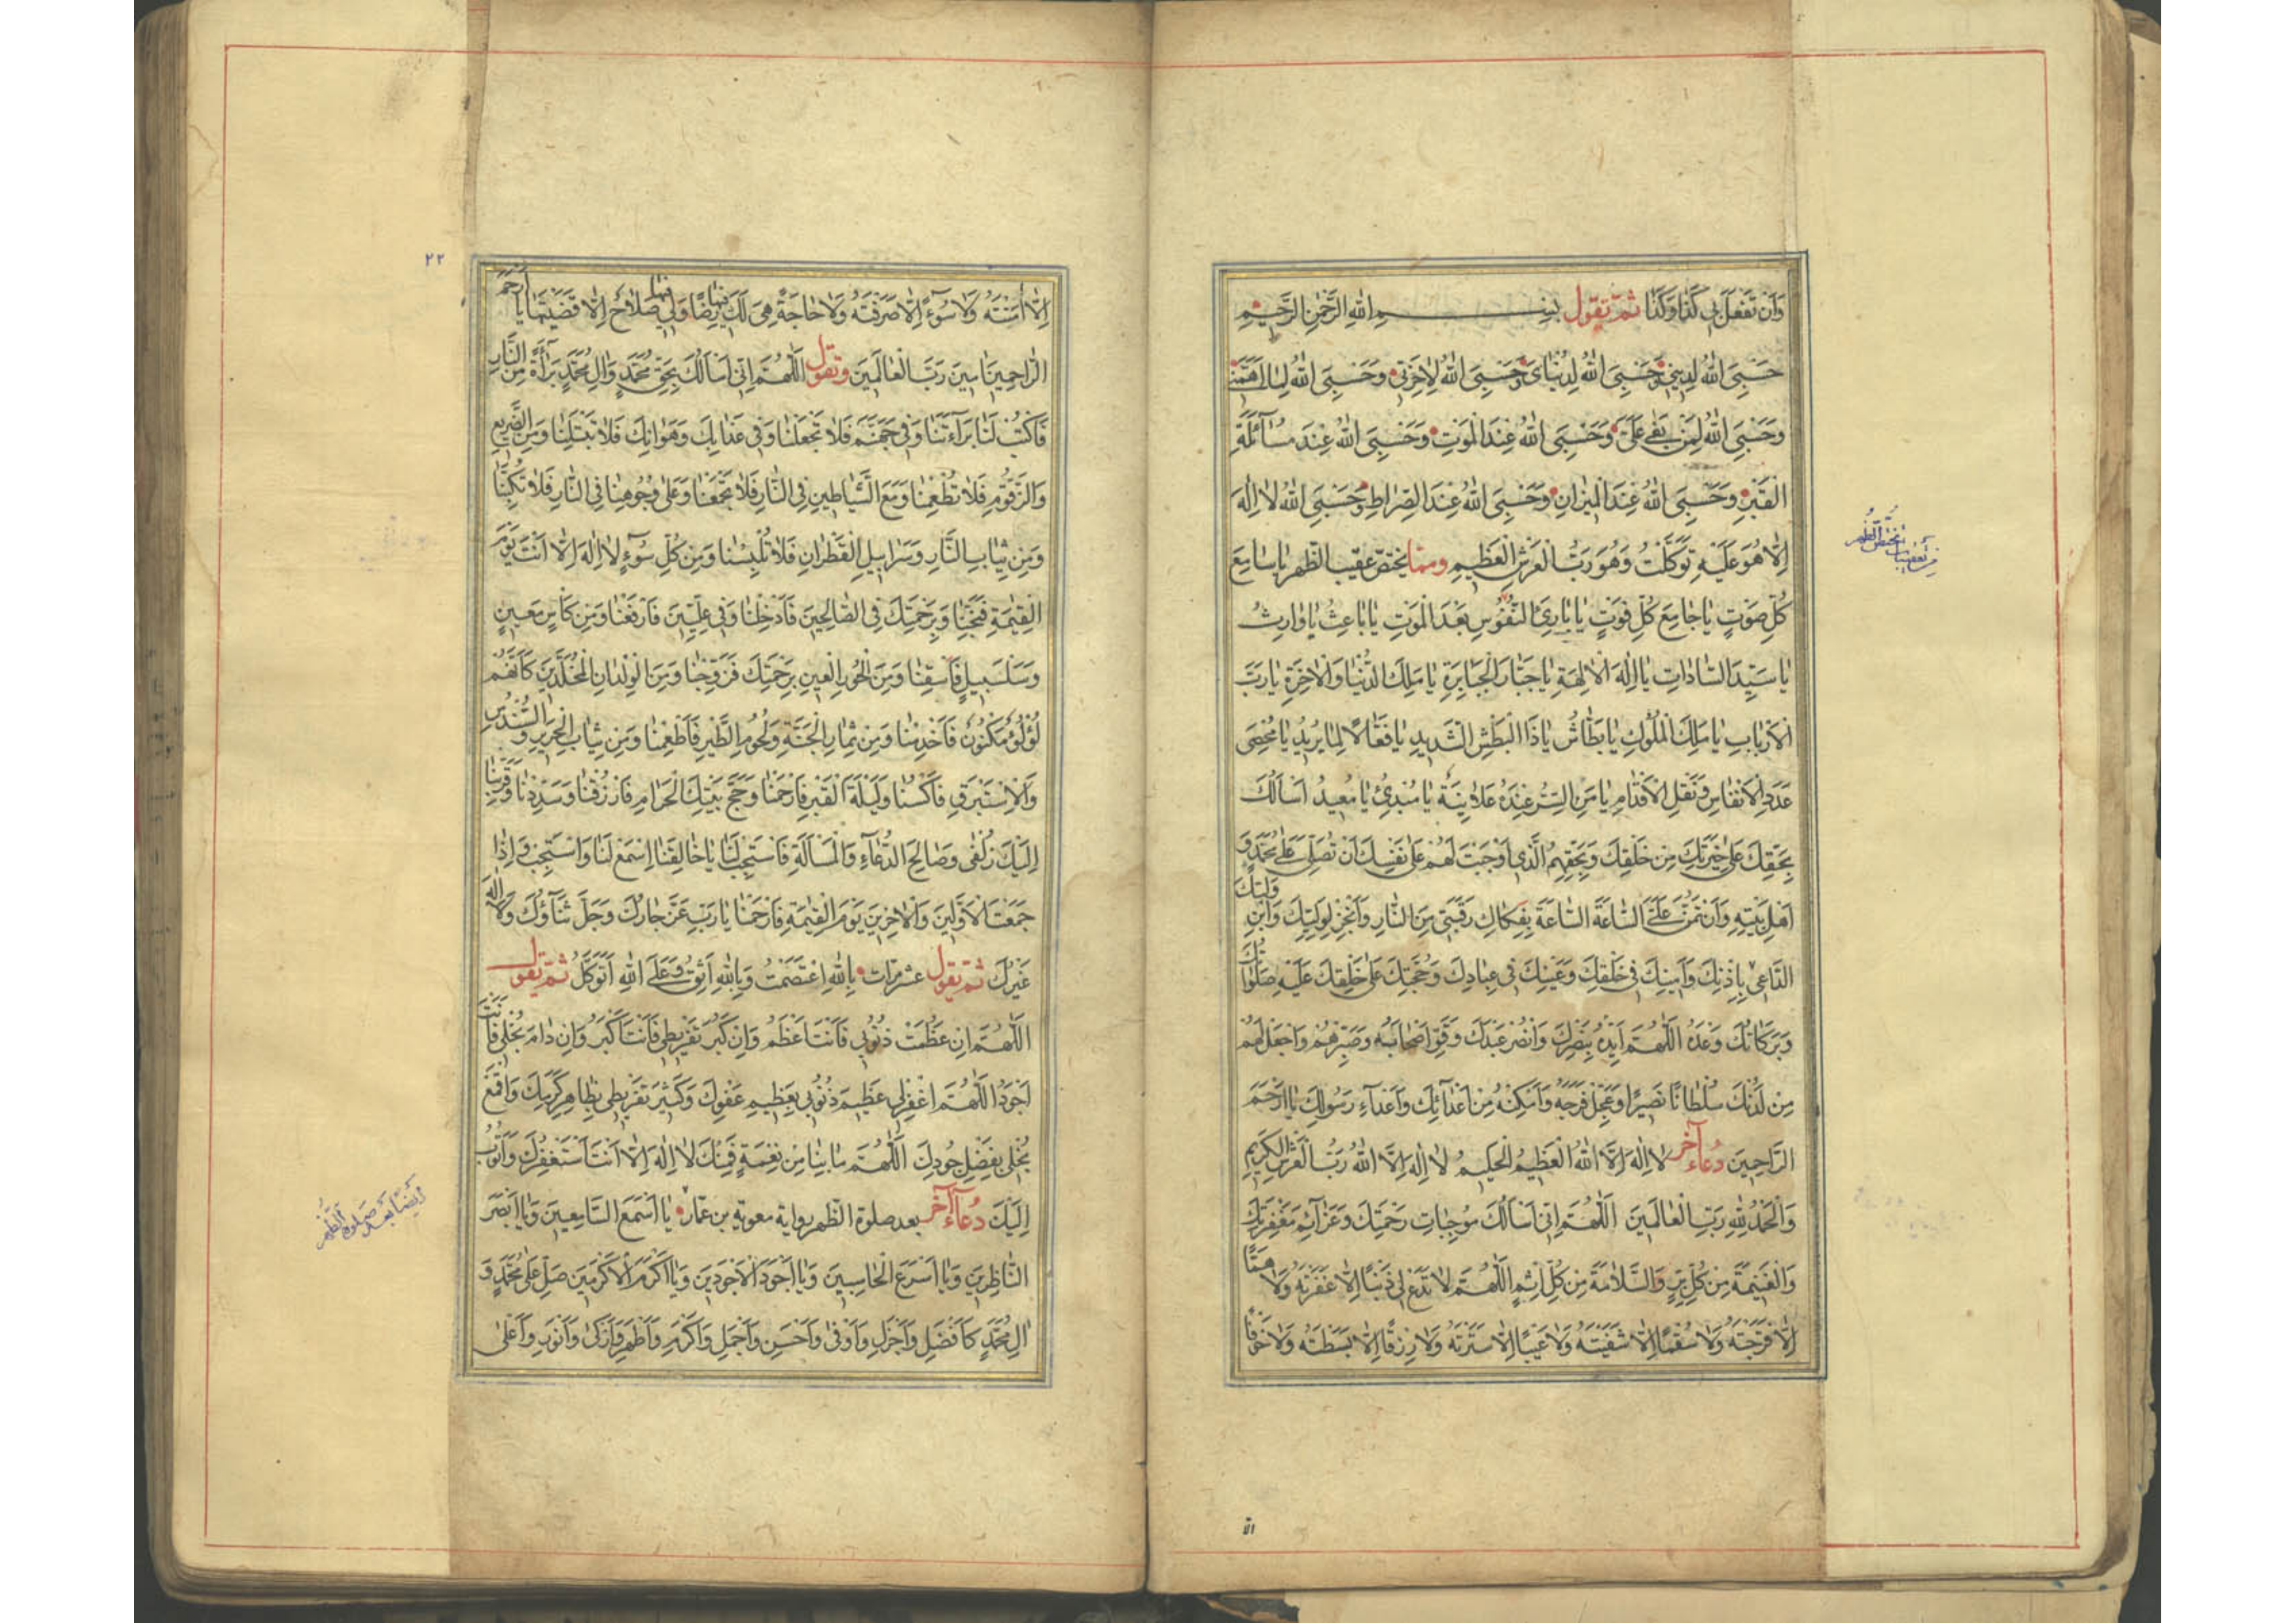 وَاَنْ تَفْعَلَ بى كَذا وَكَذا ثمّ تقول بِسْمِ اللهِ الرَّحْمنِ الرَّحيمِ
حَسْبِىَ اللهُ لِدينى وَحَسْبِىَ اللهُ لِدُنْياىَ وَحَسْبِىَ اللهُ لِاخِرَتى وَحَسْبِىَ اللهُ لِما اَهَمَّنى
وَحَسْبِىَ اللهُ لِمَنْ بَغى عَلَىَّ وَحَسْبِىَ اللهُ عِنْدَ الْمَوْتِ وَحَسْبِىَ اللهُ عِنْدَ مُسآئَلَةِ
الْقَبْرِ وَحَسْبِىَ اللهُ عِنْدَ الْميزانِ وَحَسْبِىَ اللهُ عِنْدَ الصِّراطِ وَحَسْبِىَ اللهُ لا اِلهَ
اِلّا هُوَ عَلَيْهِ تَوَكَّلْتُ وَهُوَ رَبُّ الْعَرْشِ الْعَظيمِ وممّا يختصّ عقيب الظّهر يا سامِعَ
كُلِّ صَوْتٍ يا جامِعَ كُلِّ فَوْتٍ يا بارِئَ النُّفُوسِ بَعْدَ الْمَوْتِ يا باعِثُ يا وارِثُ
يا سَيِّدَ السّاداتِ يا اِلهَ الْالِهَةِ يا جَبّارَ الْجَبابِرَةِ يا مَلِكَ الدُّنْيا وَالْاخِرَةِ يا رَبَّ
الْاَرْبابِ يا مَلِكَ الْمُلُوكِ يا بَطّاشُ يا ذَا الْبَطْشِ الشَّديدِ يا فَعّالاً لِما يُريدُ يا مُحْصِىَ
عَدَدِ الْاَنْفاسِ وَنَقْلِ الْاَقْدامِ يا مَنِ السِّرُّ عِنْدَهُ عَلانِيَةٌ يا مُبْدِئُ يا مُعيدُ اَسْاَلُكَ
بِحَقِّكَ عَلى خِيَرَتِكَ مِنْ خَلْقِكَ وَبِحَقِّهِمُ الَّذى اَوْجَبْتَ لَهُمْ عَلى نَفْسِكَ اَنْ تُصَلِّىَ عَلى مُحَمَّدٍ وَ
اَهْلِ بَيْتِهِ وَاَنْ تَمُنَّ عَلَىَّ السّاعَةَ السّاعَةَ بِفَكاكِ رَقَبَتى مِنَ النّارِ وَاَنْجِزْ لِوَلِيِّكَ وَابْنِ وَلِيِّكَ
الدّاعى بِاِذْنِكَ وَاَمينِكَ فى خَلْقِكَ وَعَيْنِكَ فى عِبادِكَ وَحُجَّتِكَ عَلى خَلْقِكَ عَلَيْهِ صَلَواتُكَ
وَبَرَكاتُكَ وَعْدَهُ اَللّهُمَّ اَيِّدْهُ بِنَصْرِكَ وَانْصُرْ عَبْدَكَ وَقَوِّ اَصْحابَهُ وَصَبِّرْهُمْ وَاجْعَلْ لَهُمْ
مِنْ لَدُنْكَ سُلْطاناً نَصيراً وَعَجِّلْ فَرَجَهُ وَاَمْكِنْهُ مِنْ اَعْدآئِكَ وَاَعْدآءِ رَسُولِكَ يا اَرْحَمَ
الرّاحِمينَ دعآء آخر لا اِلهَ اِلَّا اللهُ الْعَظيمُ الْحَليمُ لا اِلهَ اِلَّا اللهُ رَبُّ الْعَرْشِ الْكَريمِ
وَالْحَمْدُ للهِ رَبِّ الْعالَمينَ اَللّهُمَّ اِنّى اَسْاَلُكَ مُوجِباتِ رَحْمَتِكَ وَعَزآئِمَ مَغْفِرَتِكَ
وَالْغَنيمَةَ مِنْ كُلِّ بِرٍّ وَالسَّلامَةَ مِنْ كُلِّ اِثْمٍ اَللّهُمَّ لا تَدَعْ لى ذَنْباً اِلّا غَفَرْتَهُ وَلا هَمّاً
اِلّا فَرَّجْتَهُ وَلا سُقْماً اِلّا شَفَيْتَهُ وَلا عَيْباً اِلّا سَتَرْتَهُ وَلا رِزْقاً اِلّا بَسَطْتَهُ وَلا خَوْفاً
الّا
من تعقيبات تختص الظهر
٢٢
اِلّا اَمَنْتَهُ وَلا سُوٓءً اِلّا صَرَفْتَهُ وَلا حاجَةً هِىَ لَكَ فيها رِضاً وَلى فيها صَلاحٌ اِلّا قَضَيْتَها يا اَرْحَمَ
الرّاحِمينَ امينَ رَبَّ الْعالَمينَ وتقول اَللّهُمَّ اِنّى اَسْاَلُكَ بِحَقِّ مُحَمَّدٍ وَالِ مُحَمَّدٍ بَرآءَةً مِنَ النّارِ
فَاكْتُبْ لَنا بَرآءَتَنا وَفى جَهَنَّمَ فَلا تَجْعَلْنا وَفى عَذابِكَ وَهَوانِكَ فَلا تَبْتَلِنا وَمِنَ الضَّريعِ
وَالزَّقُّومِ فَلا تُطْعِمْنا وَمَعَ الشَّياطينِ فِى النّارِ فَلا تَجْمَعْنا وَعَلى وُجُوهِنا فِى النّارِ فَلا تَكُبَّنا
وَمِنْ ثِيابِ النّارِ وَسَرابيلِ الْقَطِرانِ فَلا تُلْبِسْنا وَمِنْ كُلِّ سُوٓءٍ لا اِلهَ اِلّا اَنْتَ يَوْمَ
الْقِيمَةِ فَنَجِّنا وَبِرَحْمَتِكَ فِى الصّالِحينَ فَاَدْخِلْنا وَفى عِلِّيّينَ فَارْفَعْنا وَمِنْ كَاْسٍ مَعينٍ
وَسَلْسَبيلٍ فَاسْقِنا وَمِنَ الْحُورِ الْعينِ بِرَحْمَتِكَ فَزَوِّجْنا وَمِنَ الْوِلْدانِ الْمُخَلَّدينَ كَاَنَّهُمْ
لُؤْلُؤٌ مَكْنُونٌ فَاَخْدِمْنا وَمِنْ ثِمارِ الْجَنَّةِ وَلُحُومِ الطَّيْرِ فَاَطْعِمْنا وَمِنْ ثِيابِ الْحَريرِ وَالسُّنْدُسِ
وَالْاِسْتَبْرَقِ فَاكْسُنا وَلَيْلَةَ الْقَبْرِ فَارْحَمْنا وَحَجَّ بَيْتِكَ الْحَرامِ فَارْزُقْنا وَسَدِّدْنا وَقَرِّبْنا
اِلَيْكَ زُلْفى وَصالِحَ الدُّعآءِ وَالْمَسْاَلَةِ فَاسْتَجِبْ لَنا يا خالِقَنا اِسْمَعْ لَنا وَاسْتَجِبْ وَاِذا
جَمَعْتَ الْاَوَّلينَ وَالْاخِرينَ يَوْمَ الْقِيمَةِ فَارْحَمْنا يا رَبِّ عَزَّ جارُكَ وَجَلَّ ثَنآؤُكَ وَلا اِلهَ
غَيْرُكَ ثمّ تقول عشر مرّات بِاللهِ اعْتَصَمْتُ وَبِاللهِ اَثِقُ وَعَلَى اللهِ اَتَوَكَّلُ ثمّ تقول
اَللّهُمَّ اِنْ عَظُمَتْ ذُنُوبى فَاَنْتَ اَعْظَمُ وَاِنْ كَبُرَ تَفْريطى فَاَنْتَ اَكْبَرُ وَاِنْ دامَ بُخْلى فَاَنْتَ
اَجْوَدُ اَللّهُمَّ اغْفِرْ لى عَظيمَ ذُنُوبى بِعَظيمِ عَفْوِكَ وَكَثيرَ تَفْريطى بِظاهِرِ كَرَمِكَ وَاقْمَعْ
بُخْلى بِفَضْلِ جُودِكَ اَللّهُمَّ ما بِنا مِنْ نِعْمَةٍ فَمِنْكَ لا اِلهَ اِلّا اَنْتَ اَسْتَغْفِرُكَ وَاَتُوبُ
اِلَيْكَ دعآء آخر بعد صلوة الظّهر رواية معوية بن عمّار يا اَسْمَعَ السّامِعينَ وَيا اَبْصَرَ
النّاظِرينَ وَيا اَسْرَعَ الْحاسِبينَ وَيا اَجْوَدَ الْاَجْوَدينَ وَيا اَكْرَمَ الْاَكْرَمينَ صَلِّ عَلى مُحَمَّدٍ وَ
الِ مُحَمَّدٍ كَاَفْضَلِ وَاَجْزَلِ وَاَوْفى وَاَحْسَنِ وَاَجْمَلِ وَاَكْرَمِ وَاَطْهَرِ وَاَزْكى وَاَنْوَرِ وَاَعْلى
ايضا بعد صلوة الظهر